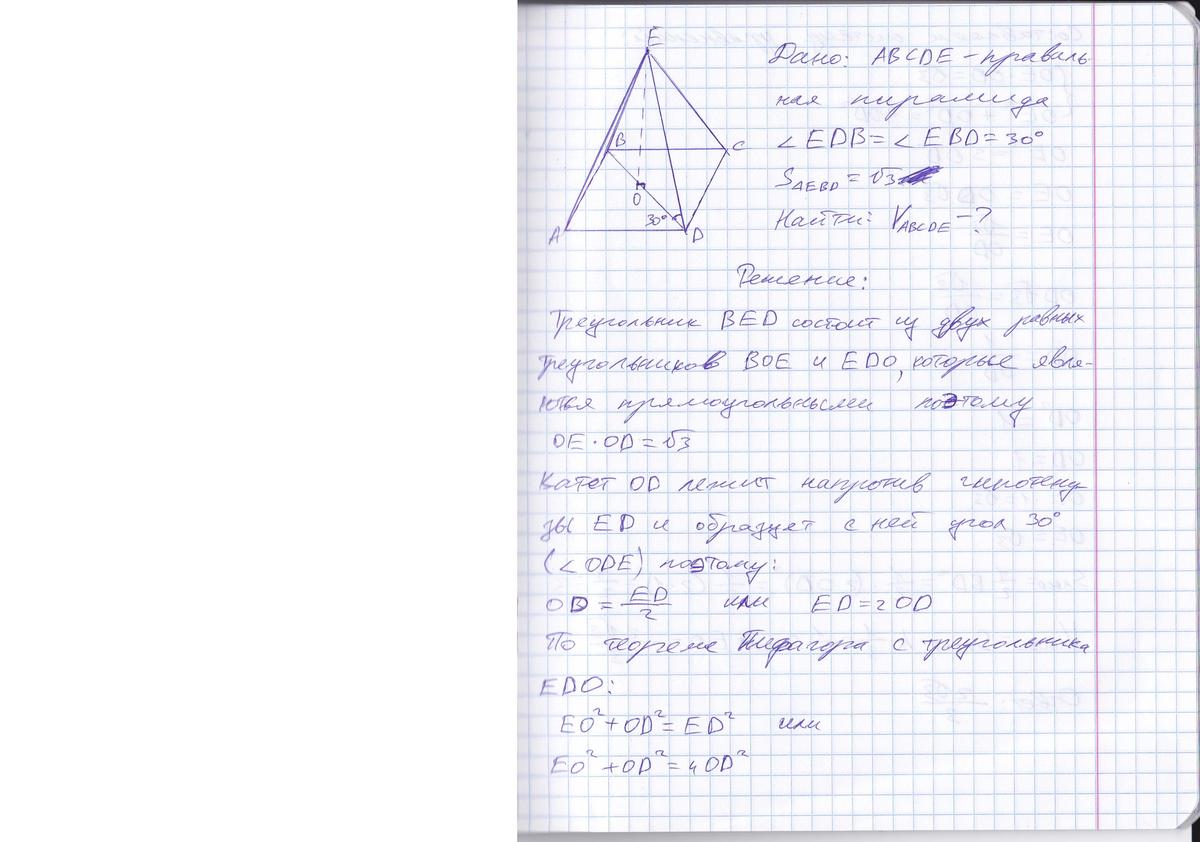 E
B
C
O
30°
A
D
Дано: ABCDE – правиль-
ная пирамида
∠EDB = ∠EBD = 30°
S△EBD = √3
Найти: V_ABCDE – ?
Решение:
Треугольник BED состоит из двух равных
треугольников BOE и EDO, которые явля-
ются прямоугольными поэтому
OE · OD = √3
Катет OD лежит напротив гипотену
зы ED и образует с ней угол 30°
(∠ODE) поэтому:
OD = ED/2 или ED = 2OD
По теореме Пифагора с треугольника
EDO:
EO² + OD² = ED² или
EO² + OD² = 4OD²